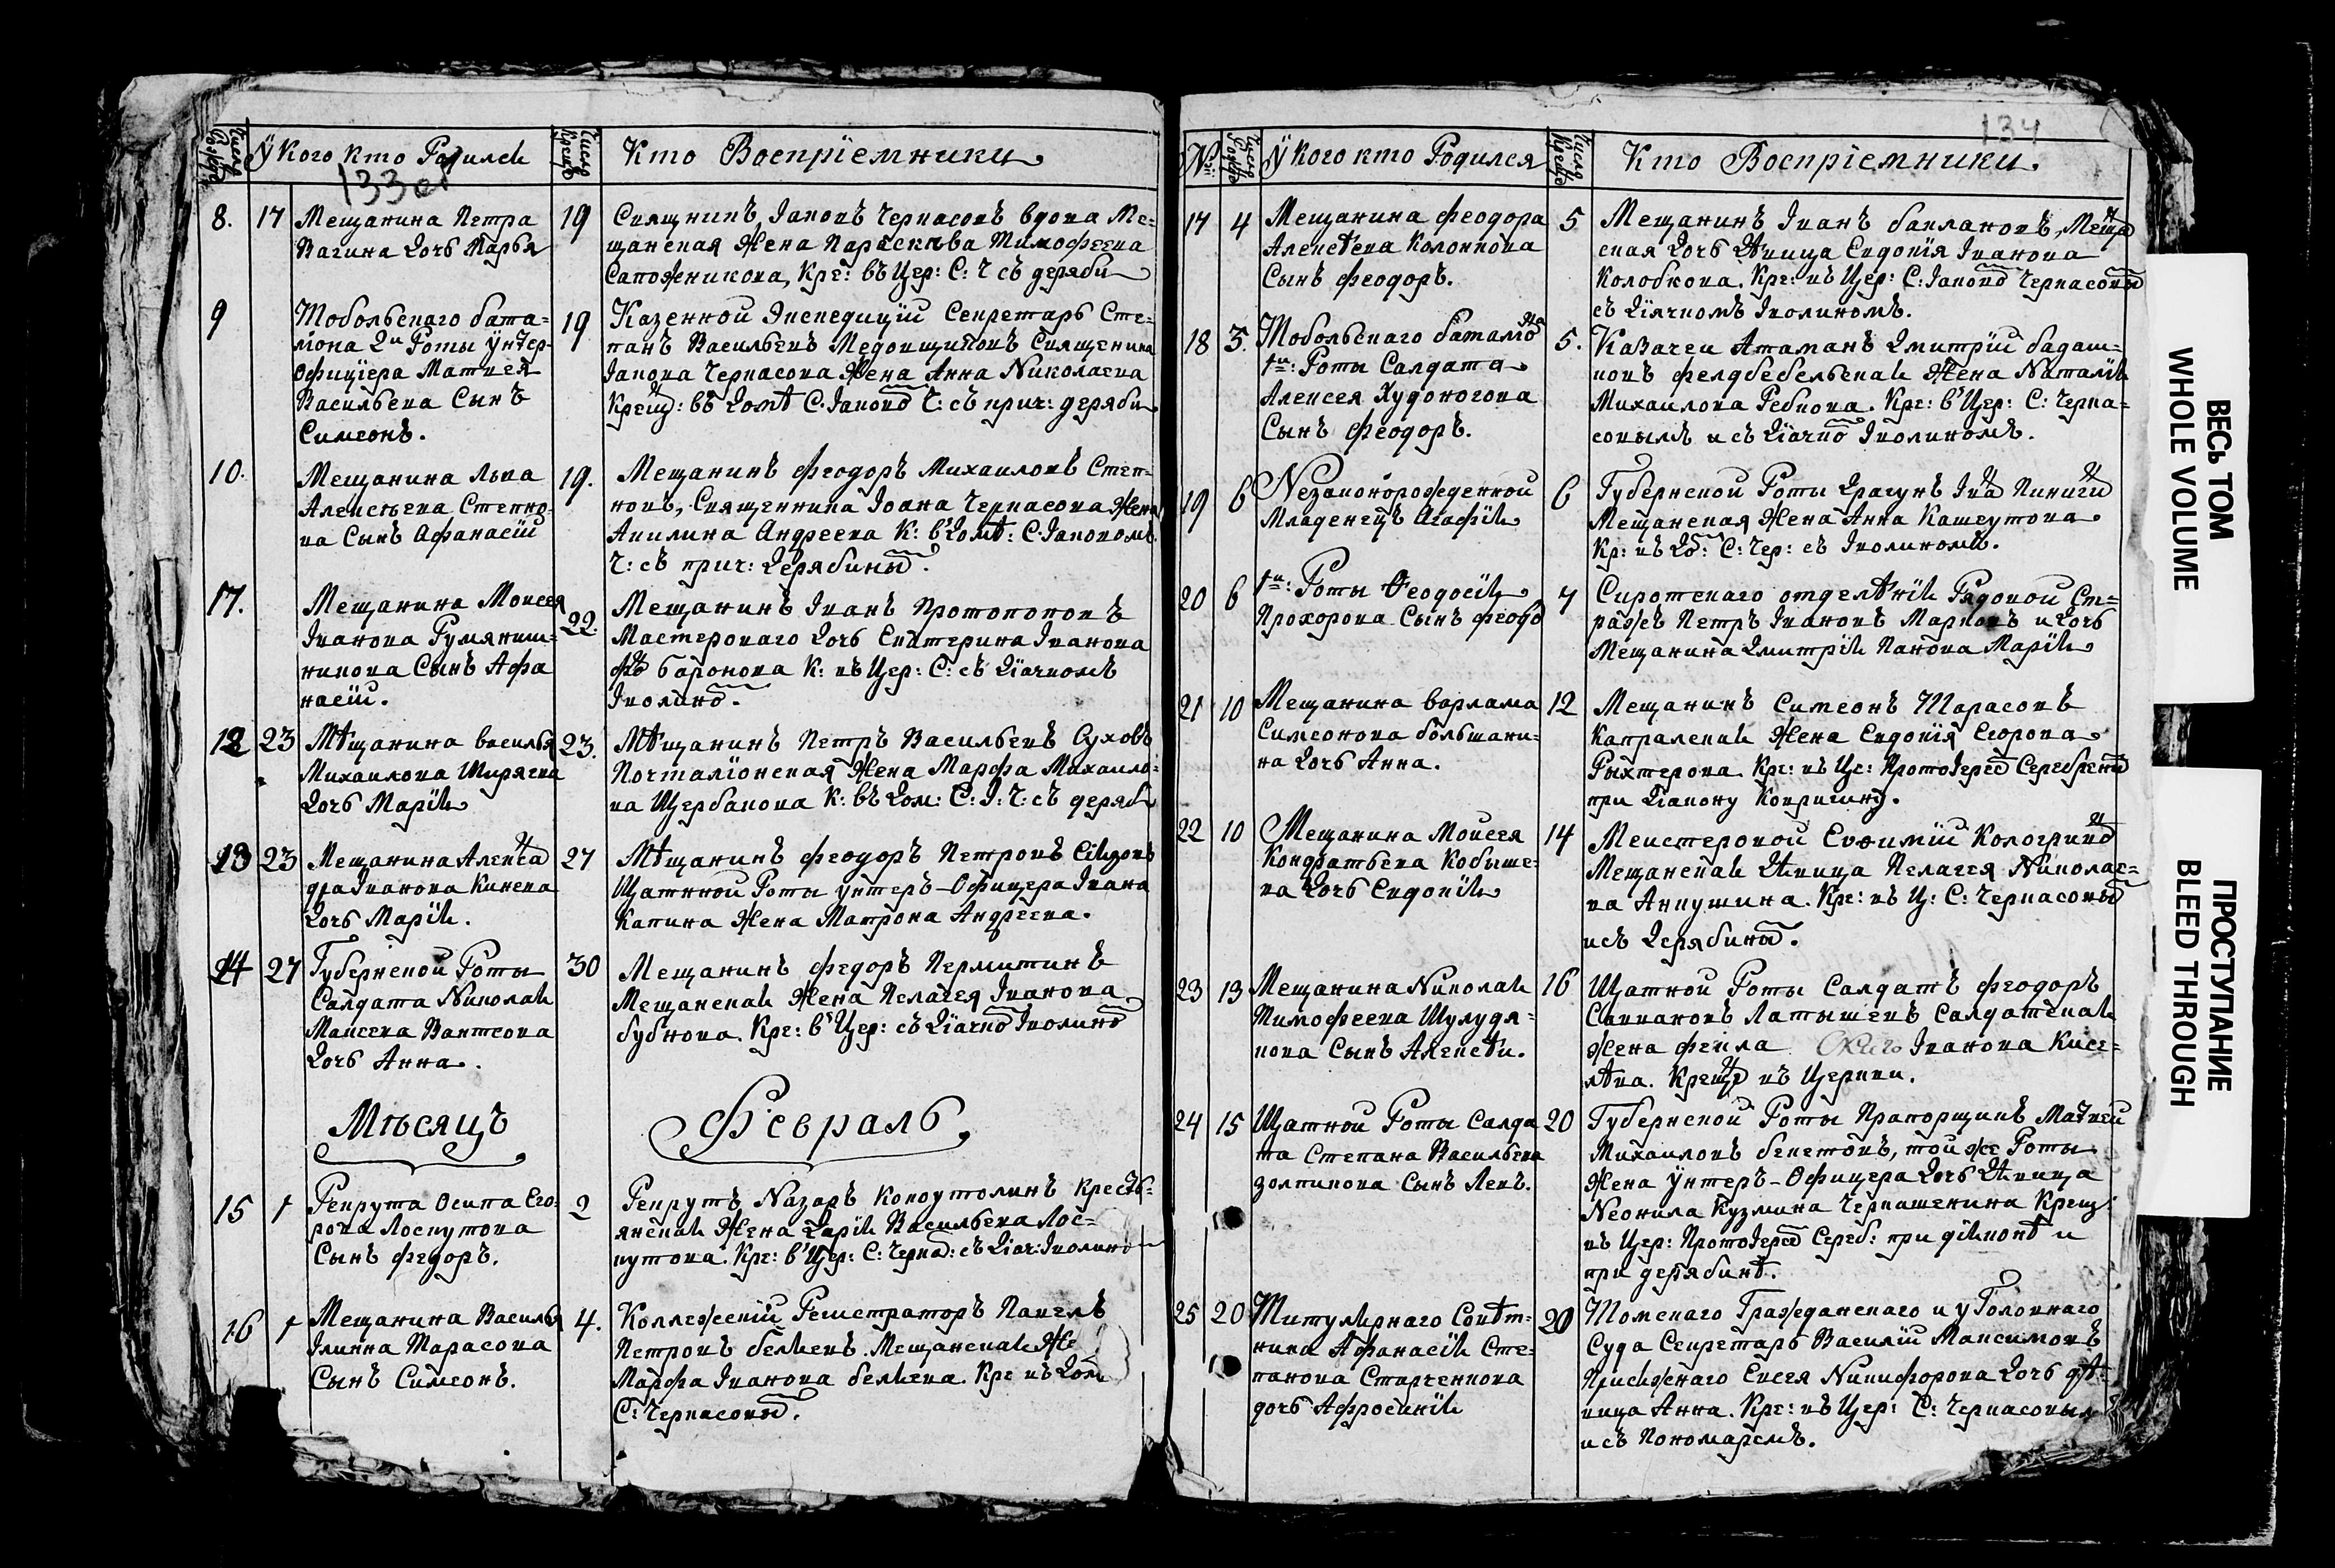 У кого кто Родился
Кто Воспріемники
133 об
8. 17 Мещанина Петра
Вагина Дочь Марья
19 Священникъ Іаковъ Черкасовъ вдова Ме=
щанская Жена Параскева Тимофеева
Сапожникова, Кре: въ Цер: С: Ч съ деряби
9 Тобольскаго бата=
лiона 2й Роты Унтер-
офицiера Матвея
Васильева Сынъ
Симеонъ.
19 Казенной Экспедицiи Секретарь Сте=
панъ Васильевъ Медовщиковъ Священника
Іакова Черкасова Жена Анна Николаева
Крещ: въ Домѣ С. Іаково Ч: съ прич: деряби
10. Мещанина Льва
Алексѣева Степно-
ва Сынъ Афанасiи
19. Мещанинъ Феодоръ Михаиловъ Степ-
новъ, Священника Іоана Черкасова Жена
Акилина Андреева К: в Домѣ: С. Іаковомъ.
Ч: съ прич: Дерябины.
17. Мещанина Моисея
Іванова Румянни-
никова Сынъ Афа
насiи.
22 Мещанинъ Іванъ Протопоповъ
Мастероваго Дочь Екатерина Іванова
Баронова К: въ Цер: С: съ Дiачкомъ
Іволино.
12 23 Мѣщанина Василья
Михаилова Ширяева
Дочь Марiя
23. Мѣщанинъ Петръ Васильевъ Суховъ
Почталiонская Жена Марфа Михаило-
ва Щербакова К: въ Дом: С: І: Ч: съ деряб
13 23 Мещанина Алекса
дра Іванова Кинева
Дочь Марiя.
27 Мѣщанинъ Феодоръ Петровъ Сизовъ
Щатнной Роты Унтеръ-Офицера Івана
Капина Жена Матрона Андреева.
14 27 Губернской Роты
Салдата Николая
Маисеева Вантеова
Дочь Анна.
30 Мещанинъ Федоръ Пермитинъ
Мещанская Жена Пелагея Іванова
Бубнова. Кре: в Цер: съ Дiачко Іволино
Мѣсяцъ Февраль
15 1 Рекрута Осипа Его-
рова Лоскутова
Сынъ Федоръ.
2 Рекрутъ Назаръ Коноутолинъ Кресть-
янская Жена Дарiя Васильева Лос=
кутова. Кре: в Цер: С: Черка: съ Дiач: Іволино
16 1 Мещанина Василья
Ілiина Тарасова
Сынъ Симеонъ.
4. Коллежскiи Регистраторъ Павелъ
Петровъ Беляевъ. Мещанская Же
Марфа Іванова Беляева. Кре въ Дом
С: Черкасовы.
134
№ У кого кто Родился
Кто Воспріемники.
17 4 Мещанина Феодора
Алексѣева Колопкова
Сынъ Феодоръ.
5 Мещанинъ Іванъ Баклановъ, Меща
ская Дочь Дѣвица Евдокiя Іванова
Колобкова. Кре: въ Цер: С: Іаково Черкасовы
съ Дiячкомъ Іволиномъ.
18 3. Тобольскаго батальо
1й: Роты Салдата
Алексея Худоногова
Сынъ Феодоръ.
5. Казачеи Атаманъ Дмитрiи Бадаш-
ковъ Фелдвебельская Жена Наталiя
Михаилова Ребкова. Кре: в Цер: С: Черка=
совымъ и съ Дiачко Іволиномъ.
19 6 Незаконорожденной
Младенецъ Агафiя
6 Губернской Роты Драгунъ Іва Пиниги
Мещанская Жена Анна Кашеутова
Кр: въ До: С: Чер: съ Іволиномъ.
20 6 1й: Роты Феодосiя
Прохорова Сынъ Феодо
7 Сиротскаго отделѣнiя Рядовой Ст=
ражъ Петръ Івановъ Марковъ и Дочь
Мещанина Дмитрiя Панова Марiя
21 10 Мещанина Варлама
Симеонова Большани-
на Дочь Анна.
12 Мещанинъ Симеонъ Тарасовъ
Капралская Жена Евдокiя Егорова
Рыхтерова. Кре: въ Це: Протоiерео Серебрени
при Дiакону Копригину.
22 10 Мещанина Моисея
Кондратьева Кобыше-
ва Дочь Евдокiя
14 Меистеровой Евѳимiи Кологриво
Мещанская Дѣвица Пелагея Николае-
ва Анпушина. Кре: въ Ц: С: Черкасовы
и съ Дерябины.
23 13 Мещанина Николая
Тимофеева Шулудя-
кова Сынъ Алексѣи.
16 Щатной Роты Салдатъ Феодоръ
Саввановъ Латышевъ Салдатская
Жена Фекла Іванова Кисе-
лѣва. Креще въ Церкви.
24 15 Щатной Роты Салда
та Степана Васильева
Золтикова Сынъ Левъ.
20 Губернской Роты Прапорщикъ Матвеи
Михаиловъ Бекетовъ, той же Роты
Жена Унтеръ-Офицера Дочь Дѣвица
Неонила Кузмина Черкашенина Крещ:
въ Цер: Протоiерео Сереб: при дiяконѣ и
при дерябинѣ.
25 20 Титулярнаго Совѣт-
ника Афанасiя Сте-
панова Старченкова
дочь Афросинiя
20 Томскаго Гражданскаго и уголовнаго
Суда Секретарь Василiи Максимовъ
Присяжнаго Евсея Никифорова Дочь дѣ-
вица Анна. Кре: въ Цер: С: Черкасовым
и съ Пономаремъ.
ВЕСЬ ТОМ
WHOLE VOLUME
ПРОСТУПАНИЕ
BLEED THROUGH